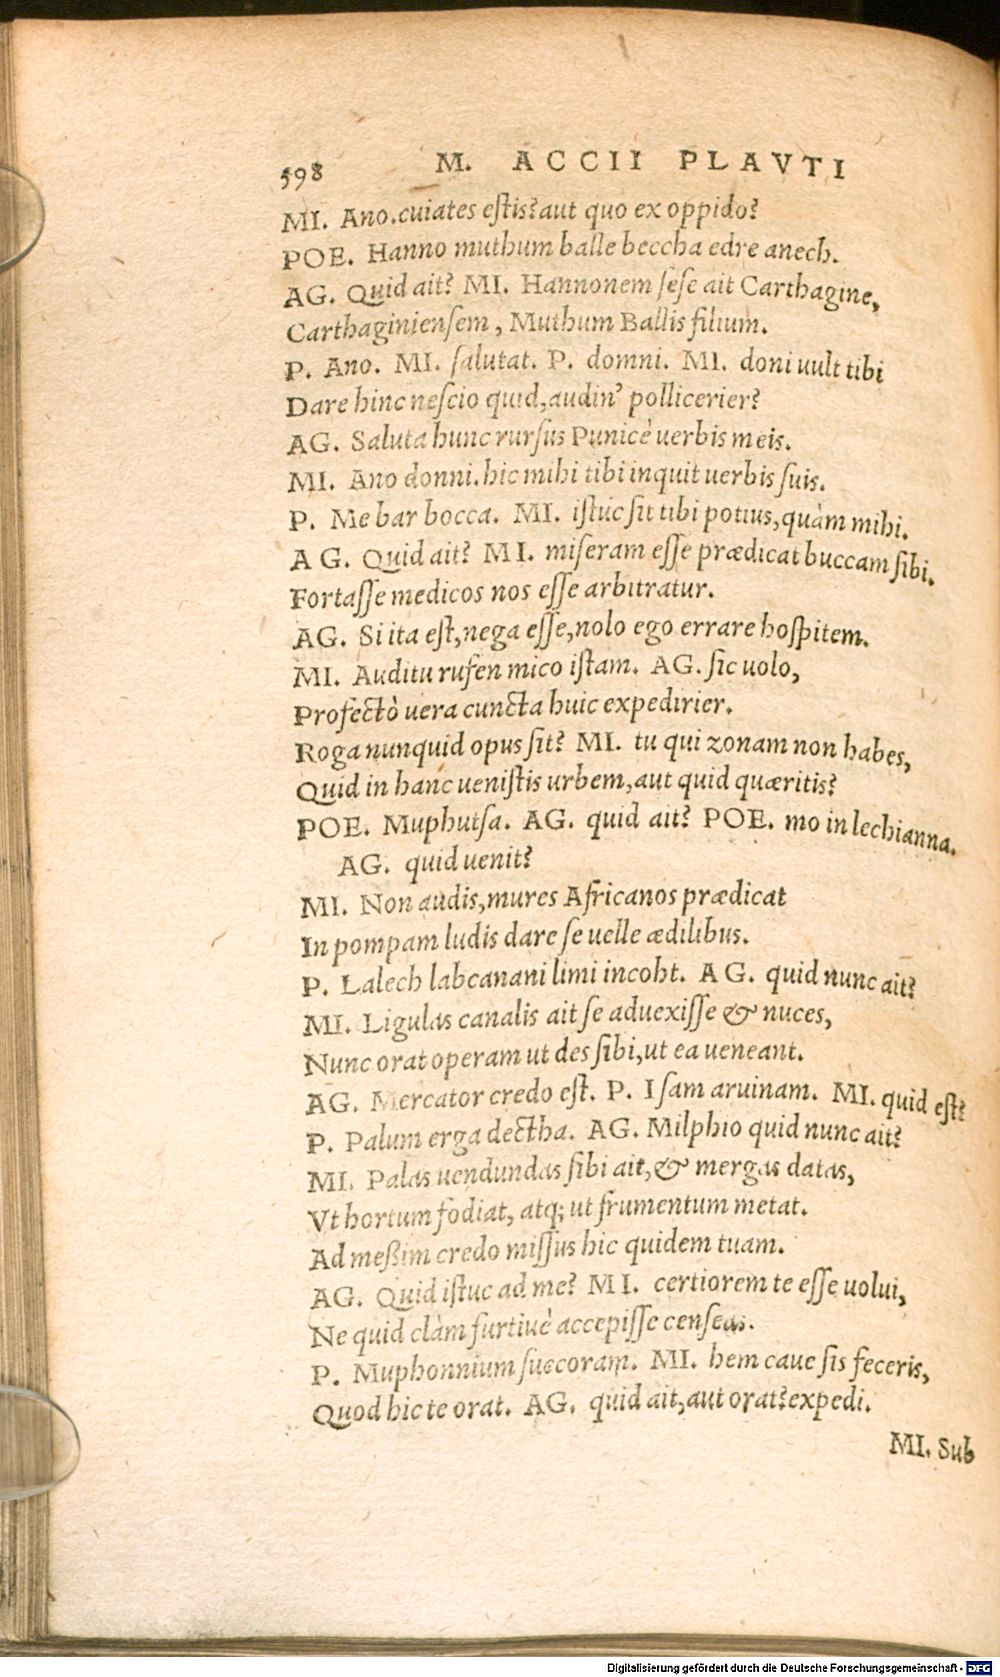 598 M. ACCII PLAVTI
MI. Ano.cuiates eſtis?aut quo ex oppido?
POE. Hanno muthum balle beccha edre anech.
AG. Quid ait? MI. Hannonem ſeſe ait Carthagine,
Carthaginienſem, Muthum Ballis filium.
P. Ano. MI. ſalutat. P. domni. MI. doni uult tibi
Dare hinc neſcio quid,audin' pollicerier?
AG. Saluta hunc rurſus Punicè uerbis meis.
MI. Ano donni.hic mihi tibi inquit uerbis ſuis.
P. Me bar bocca. MI. iſtuc ſit tibi potius,quàm mihi.
AG. Quid ait? MI. miſeram eſſe prædicat buccam ſibi.
Fortaſſe medicos nos eſſe arbitratur.
AG. Si ita eſt,nega eſſe,nolo ego errare hoſpitem.
MI. Auditu rufen mico iſtam. AG. ſic uolo,
Profectò uera cuncta huic expedirier.
Roga nunquid opus ſit? MI. tu qui zonam non habes,
Quid in hanc ueniſtis urbem,aut quid quæritis?
POE. Muphutſa. AG. quid ait? POE. mo in lechianna.
AG. quid uenit?
MI. Non audis,mures Africanos prædicat
In pompam ludis dare ſe uelle ædilibus.
P. Lalech labcanani limi incoht. AG. quid nunc ait?
MI. Ligulas canalis ait ſe aduexiſſe & nuces,
Nunc orat operam ut des ſibi,ut ea ueneant.
AG. Mercator credo eſt. P. Iſam aruinam. MI. quid eſt?
P. Palum erga dectha. AG. Milphio quid nunc ait?
MI. Palas uendundas ſibi ait,& mergas datas,
Vt hortum fodiat, atq; ut frumentum metat.
Ad meßim credo miſſus hic quidem tuam.
AG. Quid iſtuc ad me? MI. certiorem te eſſe uolui,
Ne quid clàm furtiuè accepiſſe cenſeas.
P. Muphonnium ſuccoram. MI. hem caue ſis feceris,
Quod hic te orat. AG. quid ait,aut orat?expedi.
MI. Sub
Digitalisierung gefördert durch die Deutsche Forschungsgemeinschaft - DFG